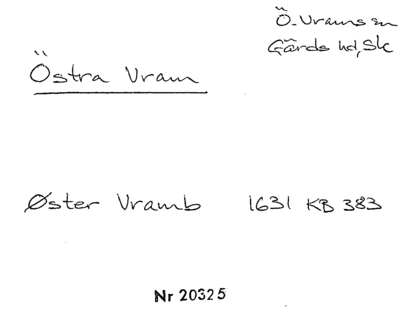 Ö. Vrams sn
Gärds hd, Sk
Östra Vram
Øster Vramb 1631 KB 383
Nr 20325